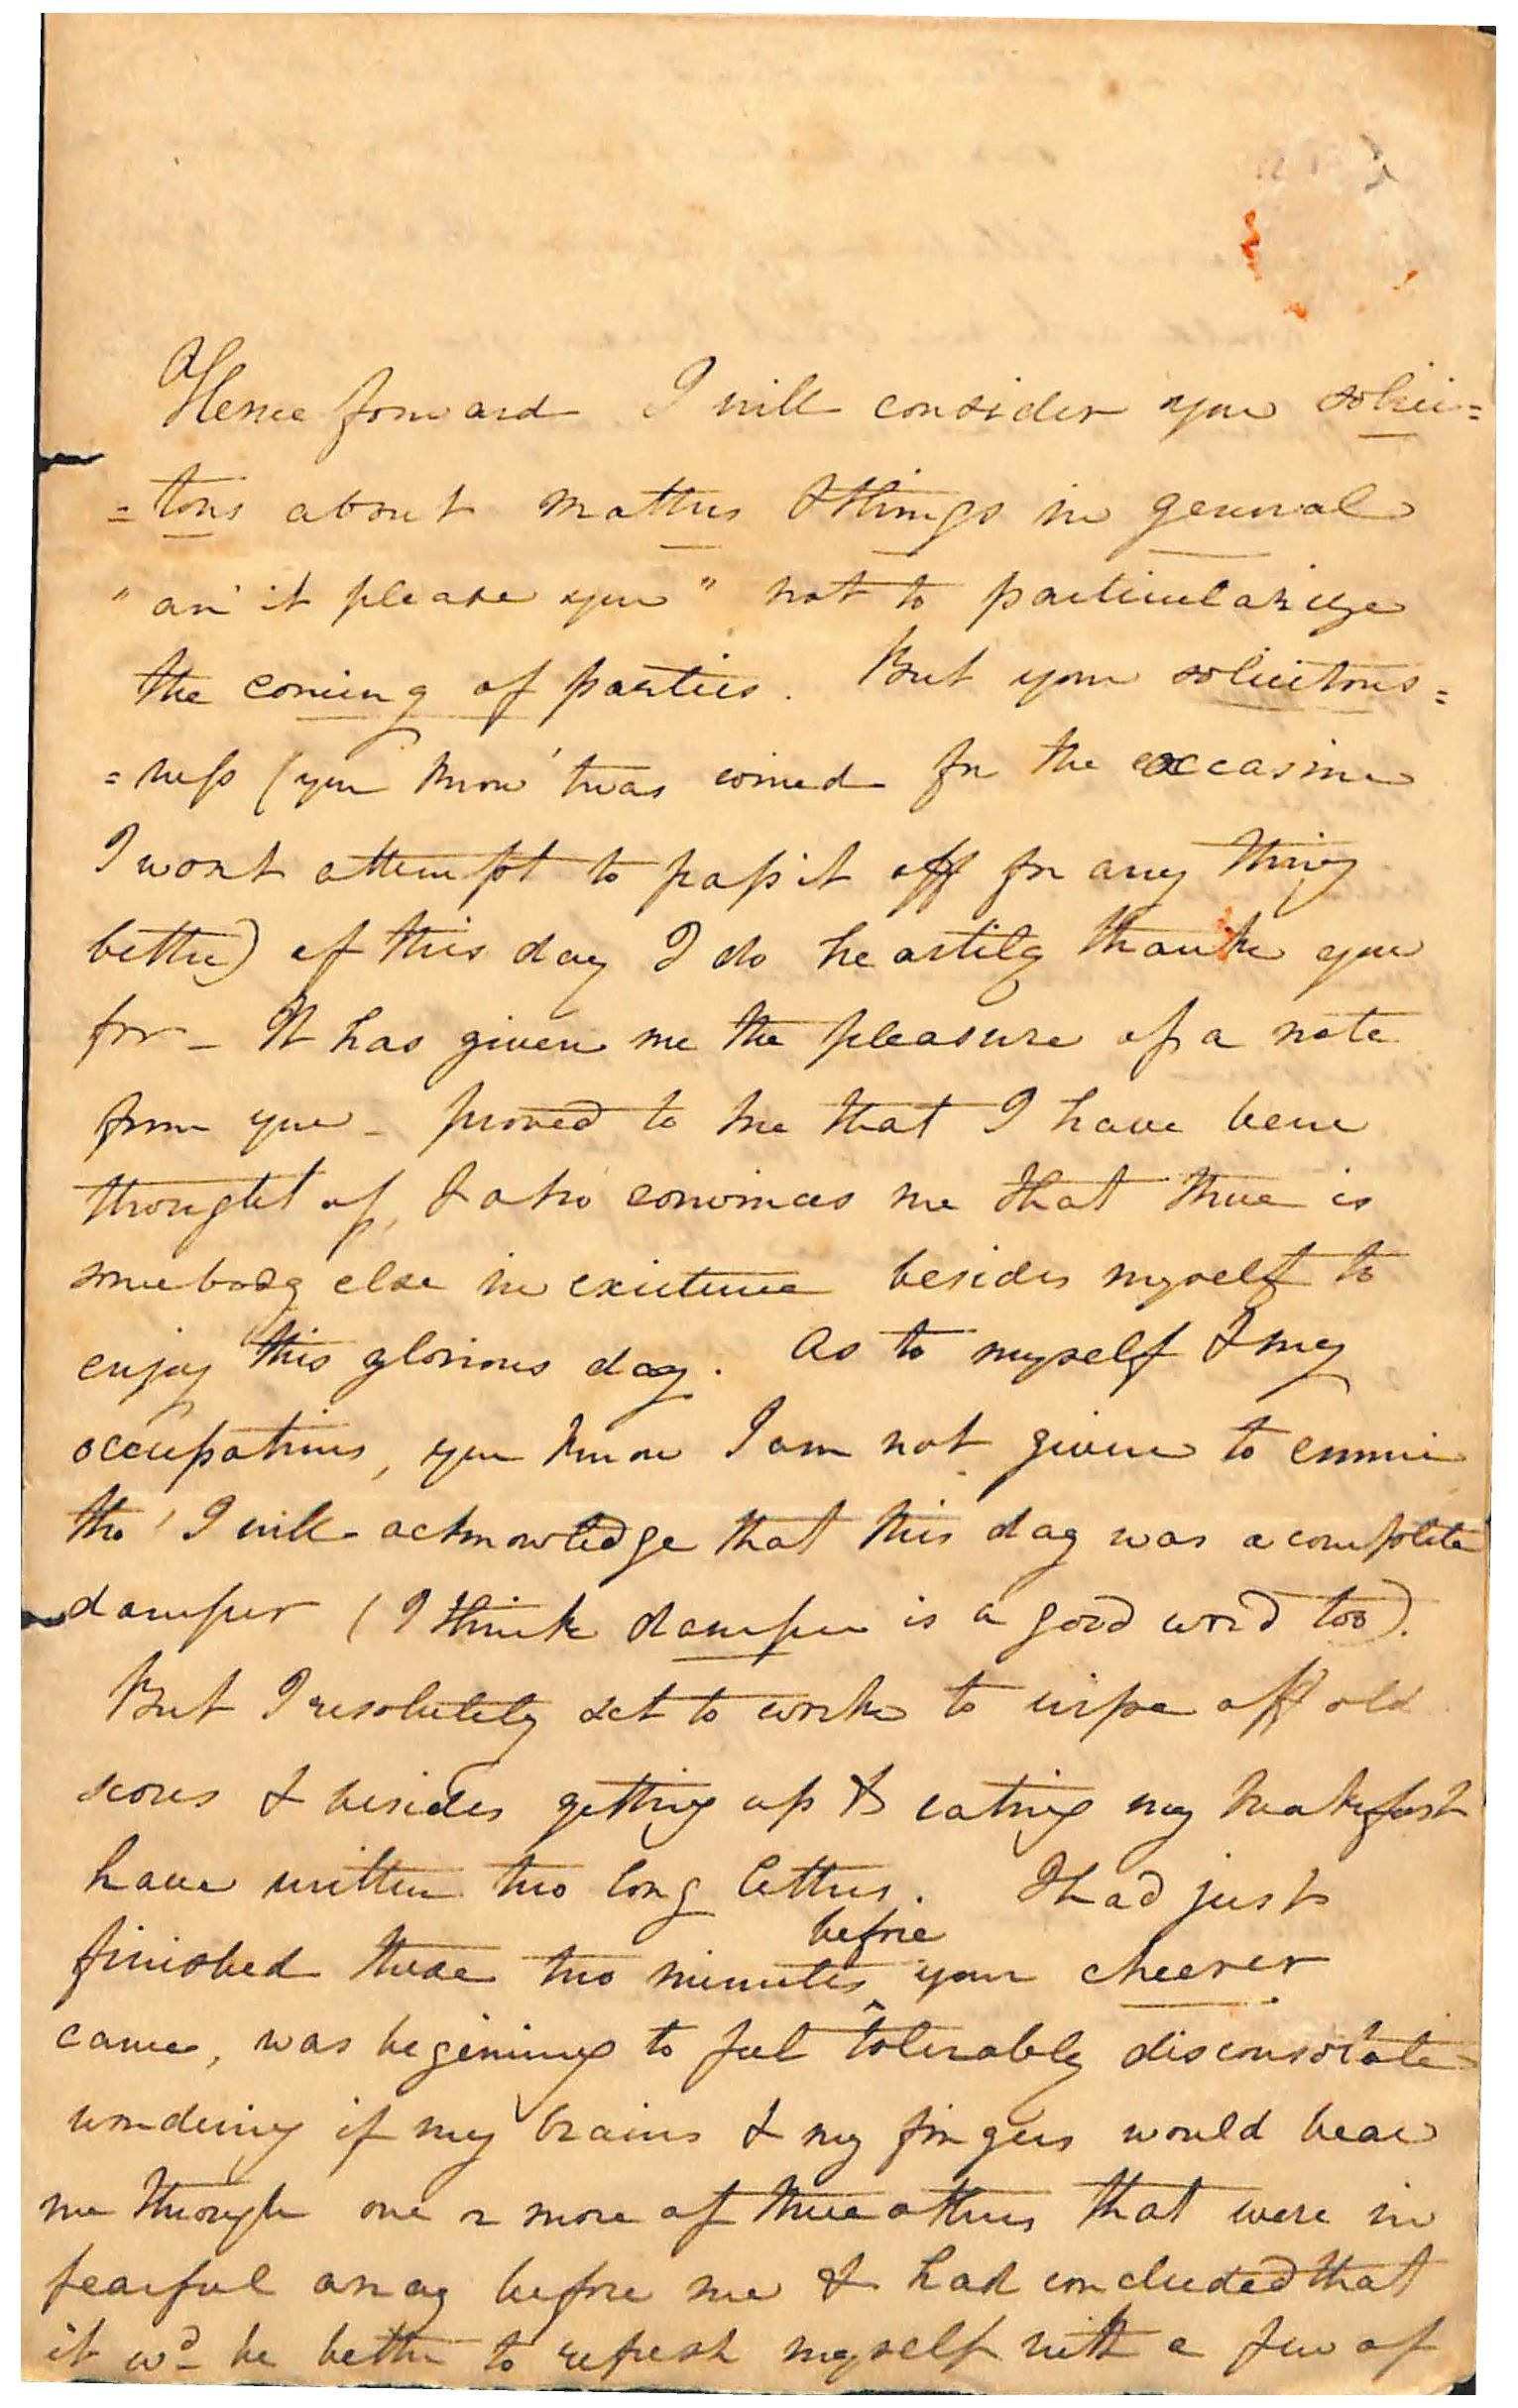 Hence forward I will consider you solici=
=tous about matters & things in general
"an' it please you" not to particularize
the coming of parties. But your solicitous=
=ness (you know 'twas coined for the occasion
I wont attempt to pass it off for any thing
better) of this day I do heartily thank you
for - It has given me the pleasure of a note
from you - proved to me that I have been
thought of, & also convinces me that there is
somebody else in existence besides myself to
enjoy this glorious day. As to myself & my
occupations, you know I am not given to ennui
tho' I will acknowledge that this day was a complete
damper (I think damper is a good word too).
But I resolutely set to work to wipe off old
scores & besides getting up & eating my breakfast
have written two long letters. I had just
finished these two minutes before your cheerer
came, was begining to feel tolerably disconsolate
wondering if my brains & my fingers would bear
me through one or more of three others that were in
fearful array before me & had concluded that
it wd be better to refresh myself with a few of